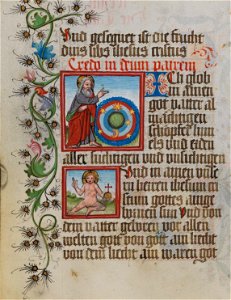 Und gesegnet ist die frucht
dins libs ihesus cristus
Credo in deum patrem
Ich glob
in ainen
got vatter al
mächtigen
schöpffer him
els und erden
aller sichtigen und unsichtigen
Und in ainen unse
rn herren ihesum cri
stum gottes ainge
bornen sun Und von
dem vatter geboren vor allen
welten gott von gott ain liecht
von dem liecht ain waren got